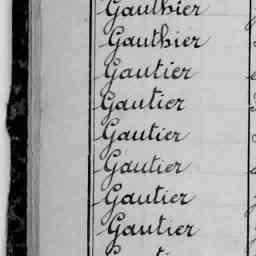 Gauthier
Gauthier
Gautier
Gautier
Gautier
Gautier
Gautier
Gautier